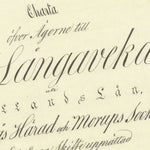 Charta
öfver Ågorne till
Långaveka
uti
llands Län,
s Härad och Morups Sock
Skifte uppmättad